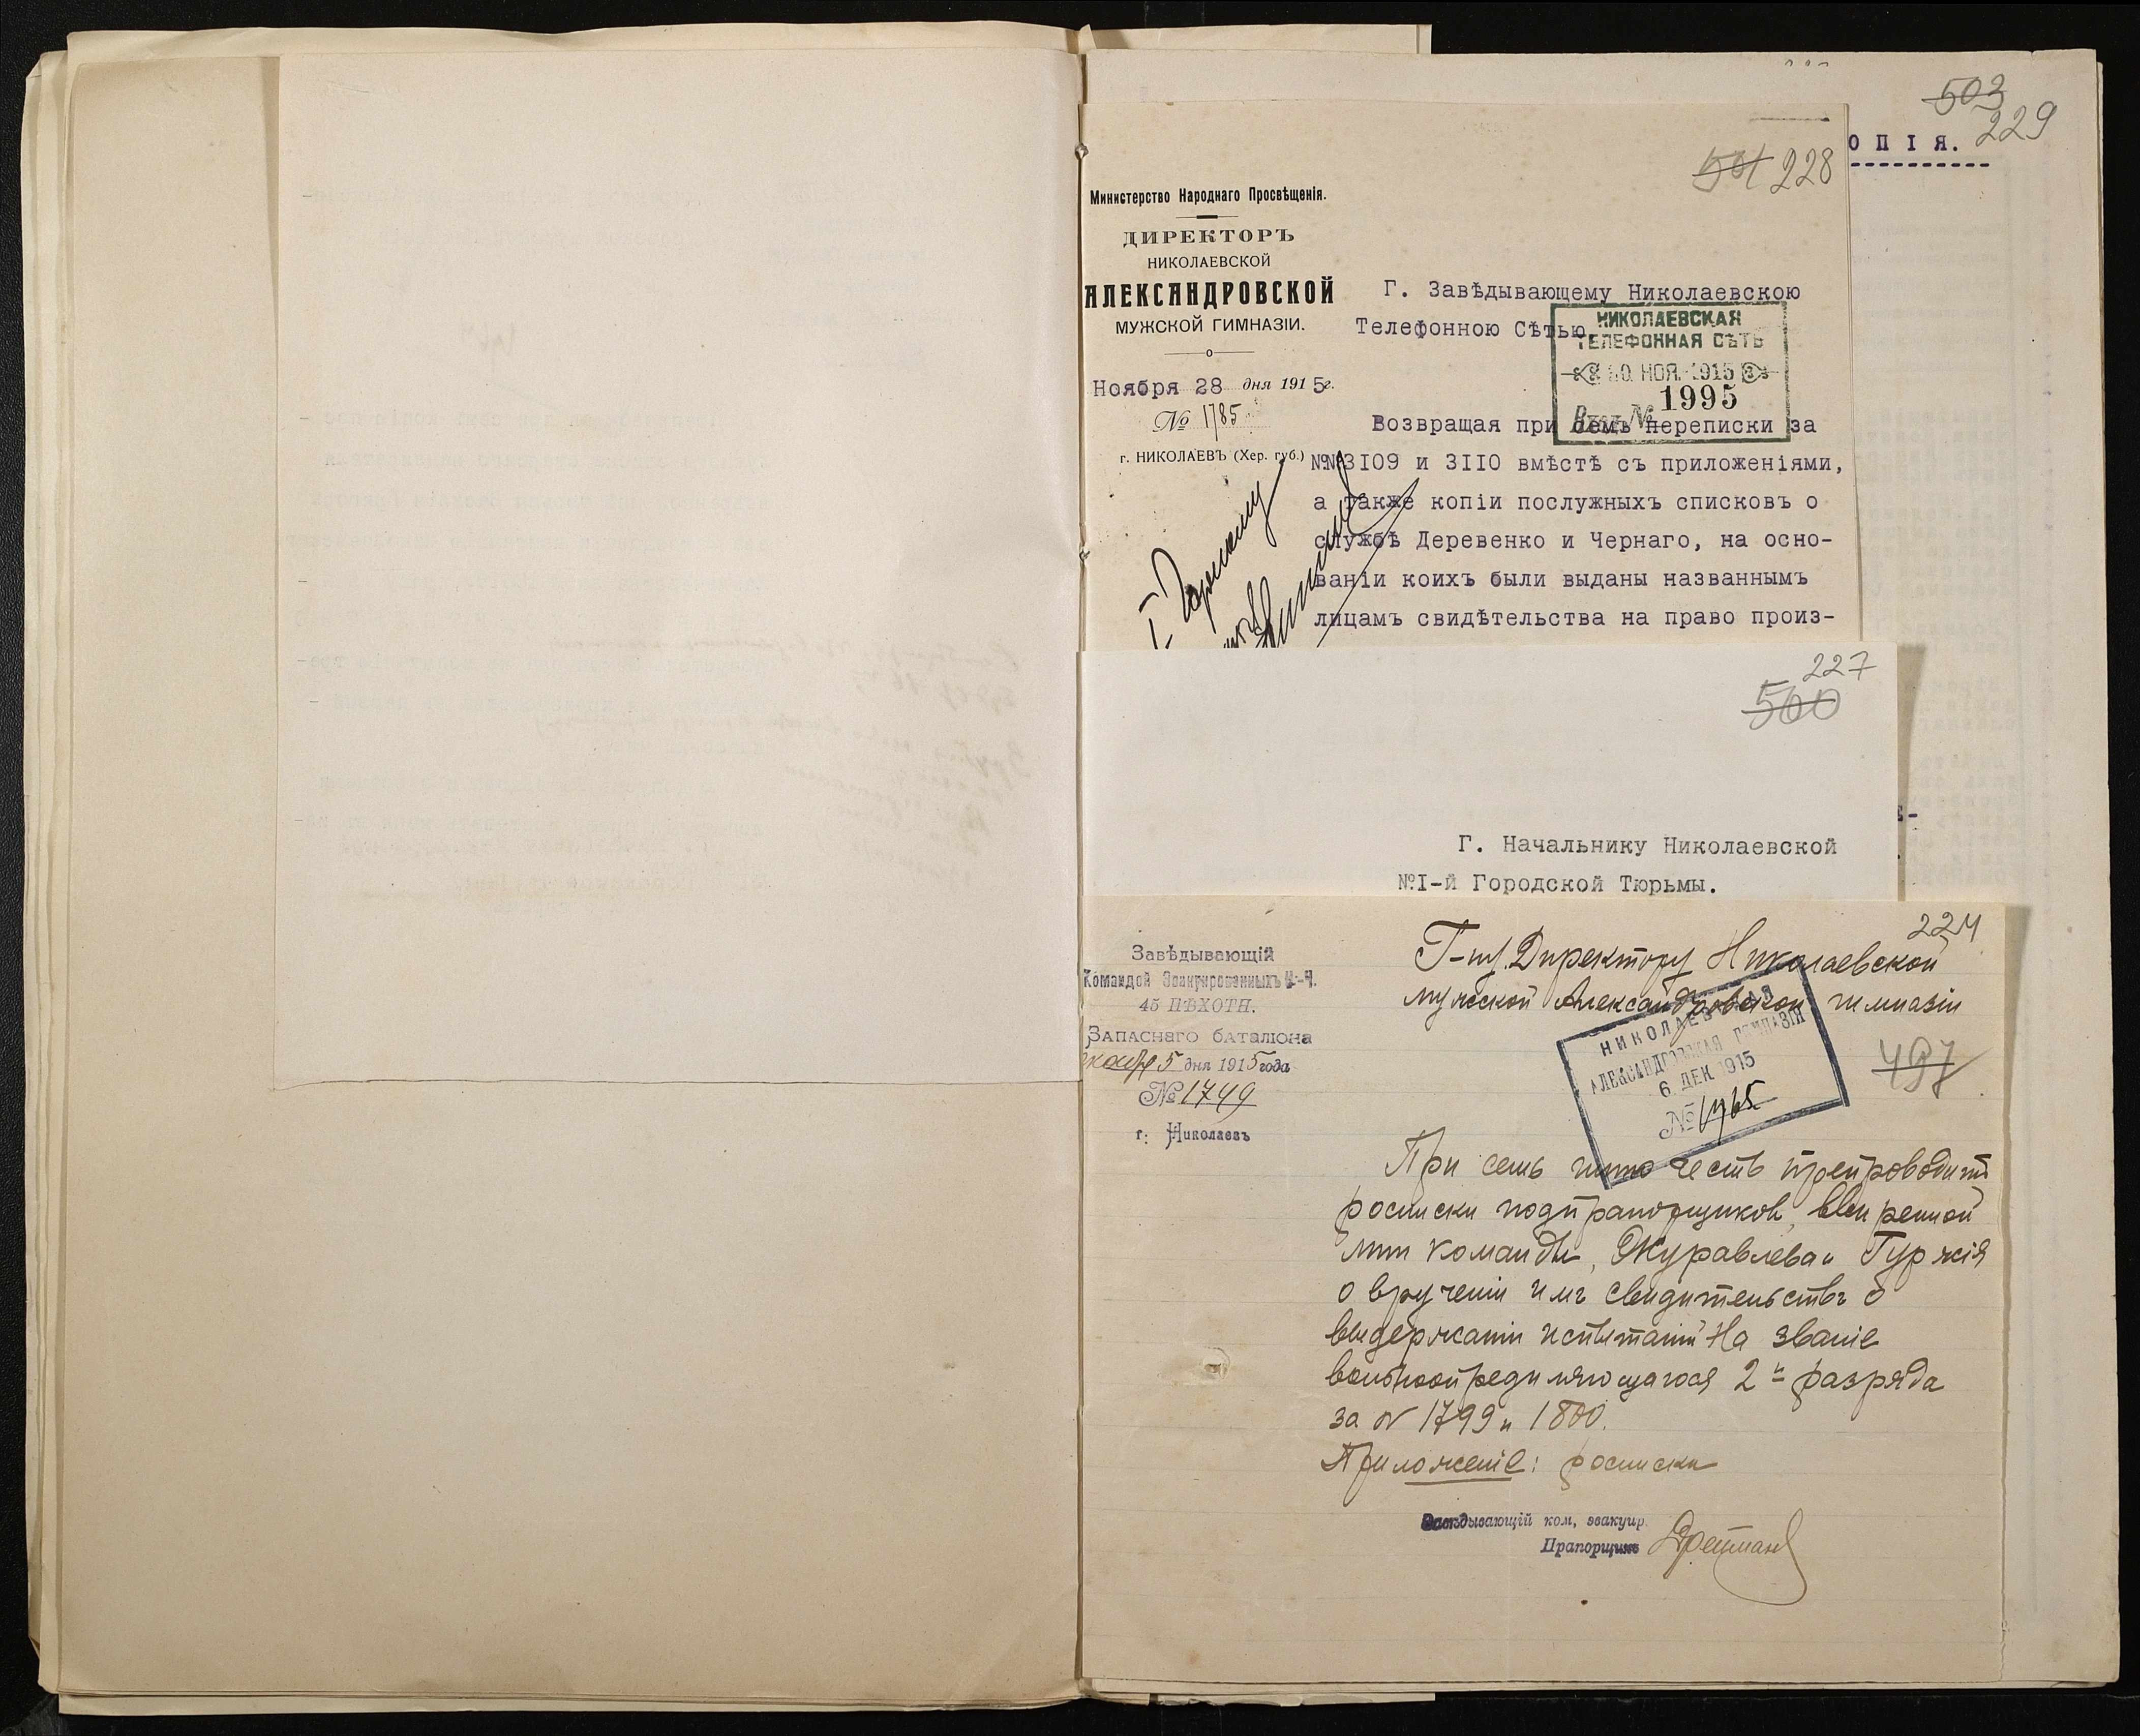 503
229
ОПІЯ.
501 228
Министерство Народнаго Просвѣщенія.
ДИРЕКТОРЪ
НИКОЛАЕВСКОЙ
АЛЕКСАНДРОВСКОЙ
МУЖСКОЙ ГИМНАЗІИ.
Ноября 28 дня 1915г.
№ 1785
г. НИКОЛАЕВЪ (Хер. губ.)
Г. Завѣдывающему Николаевскою
Телефонною Сѣтью
НИКОЛАЕВСКАЯ
ТЕЛЕФОННАЯ СѢТЬ
30 НОЯ. 1915
1995
Вход. №
Возвращая при семъ переписки за
№№3109 и 3110 вмѣстѣ съ приложеніями,
а также копіи послужныхъ списковъ о
службѣ Деревенко и Чернаго, на осно-
ваніи коихъ были выданы названнымъ
лицамъ свидѣтельства на право произ-
227
500
Г. Начальнику Николаевской
№I-й Городской Тюрьмы.
224
Завѣдывающій
Командой Эвакуированныхъ Н-Ч.
45 ПѢХОТН.
Запаснаго баталіона
5 дня 1915 года
№ 1749
г. Николаевъ
Г-ну Директору Николаевской
мужской Александровской гимназіи
НИКОЛАЕВСКАЯ
АЛЕКСАНДРОВСКАЯ ГИМНАЗІЯ
6 ДЕК 1915
№
497
При семъ имѣю честь препроводить
росписки подпрапорщиковъ, ввѣренной
мнѣ команды, Журавлева и Гуржія
о врученіи имъ свидѣтельствъ о
выдержаніи испытаній на званіе
вольноопредѣляющагося 2 разряда
за № 1799 и 1800.
Приложеніе: росписки
Завѣдывающій ком, эвакуир.
Прапорщикъ